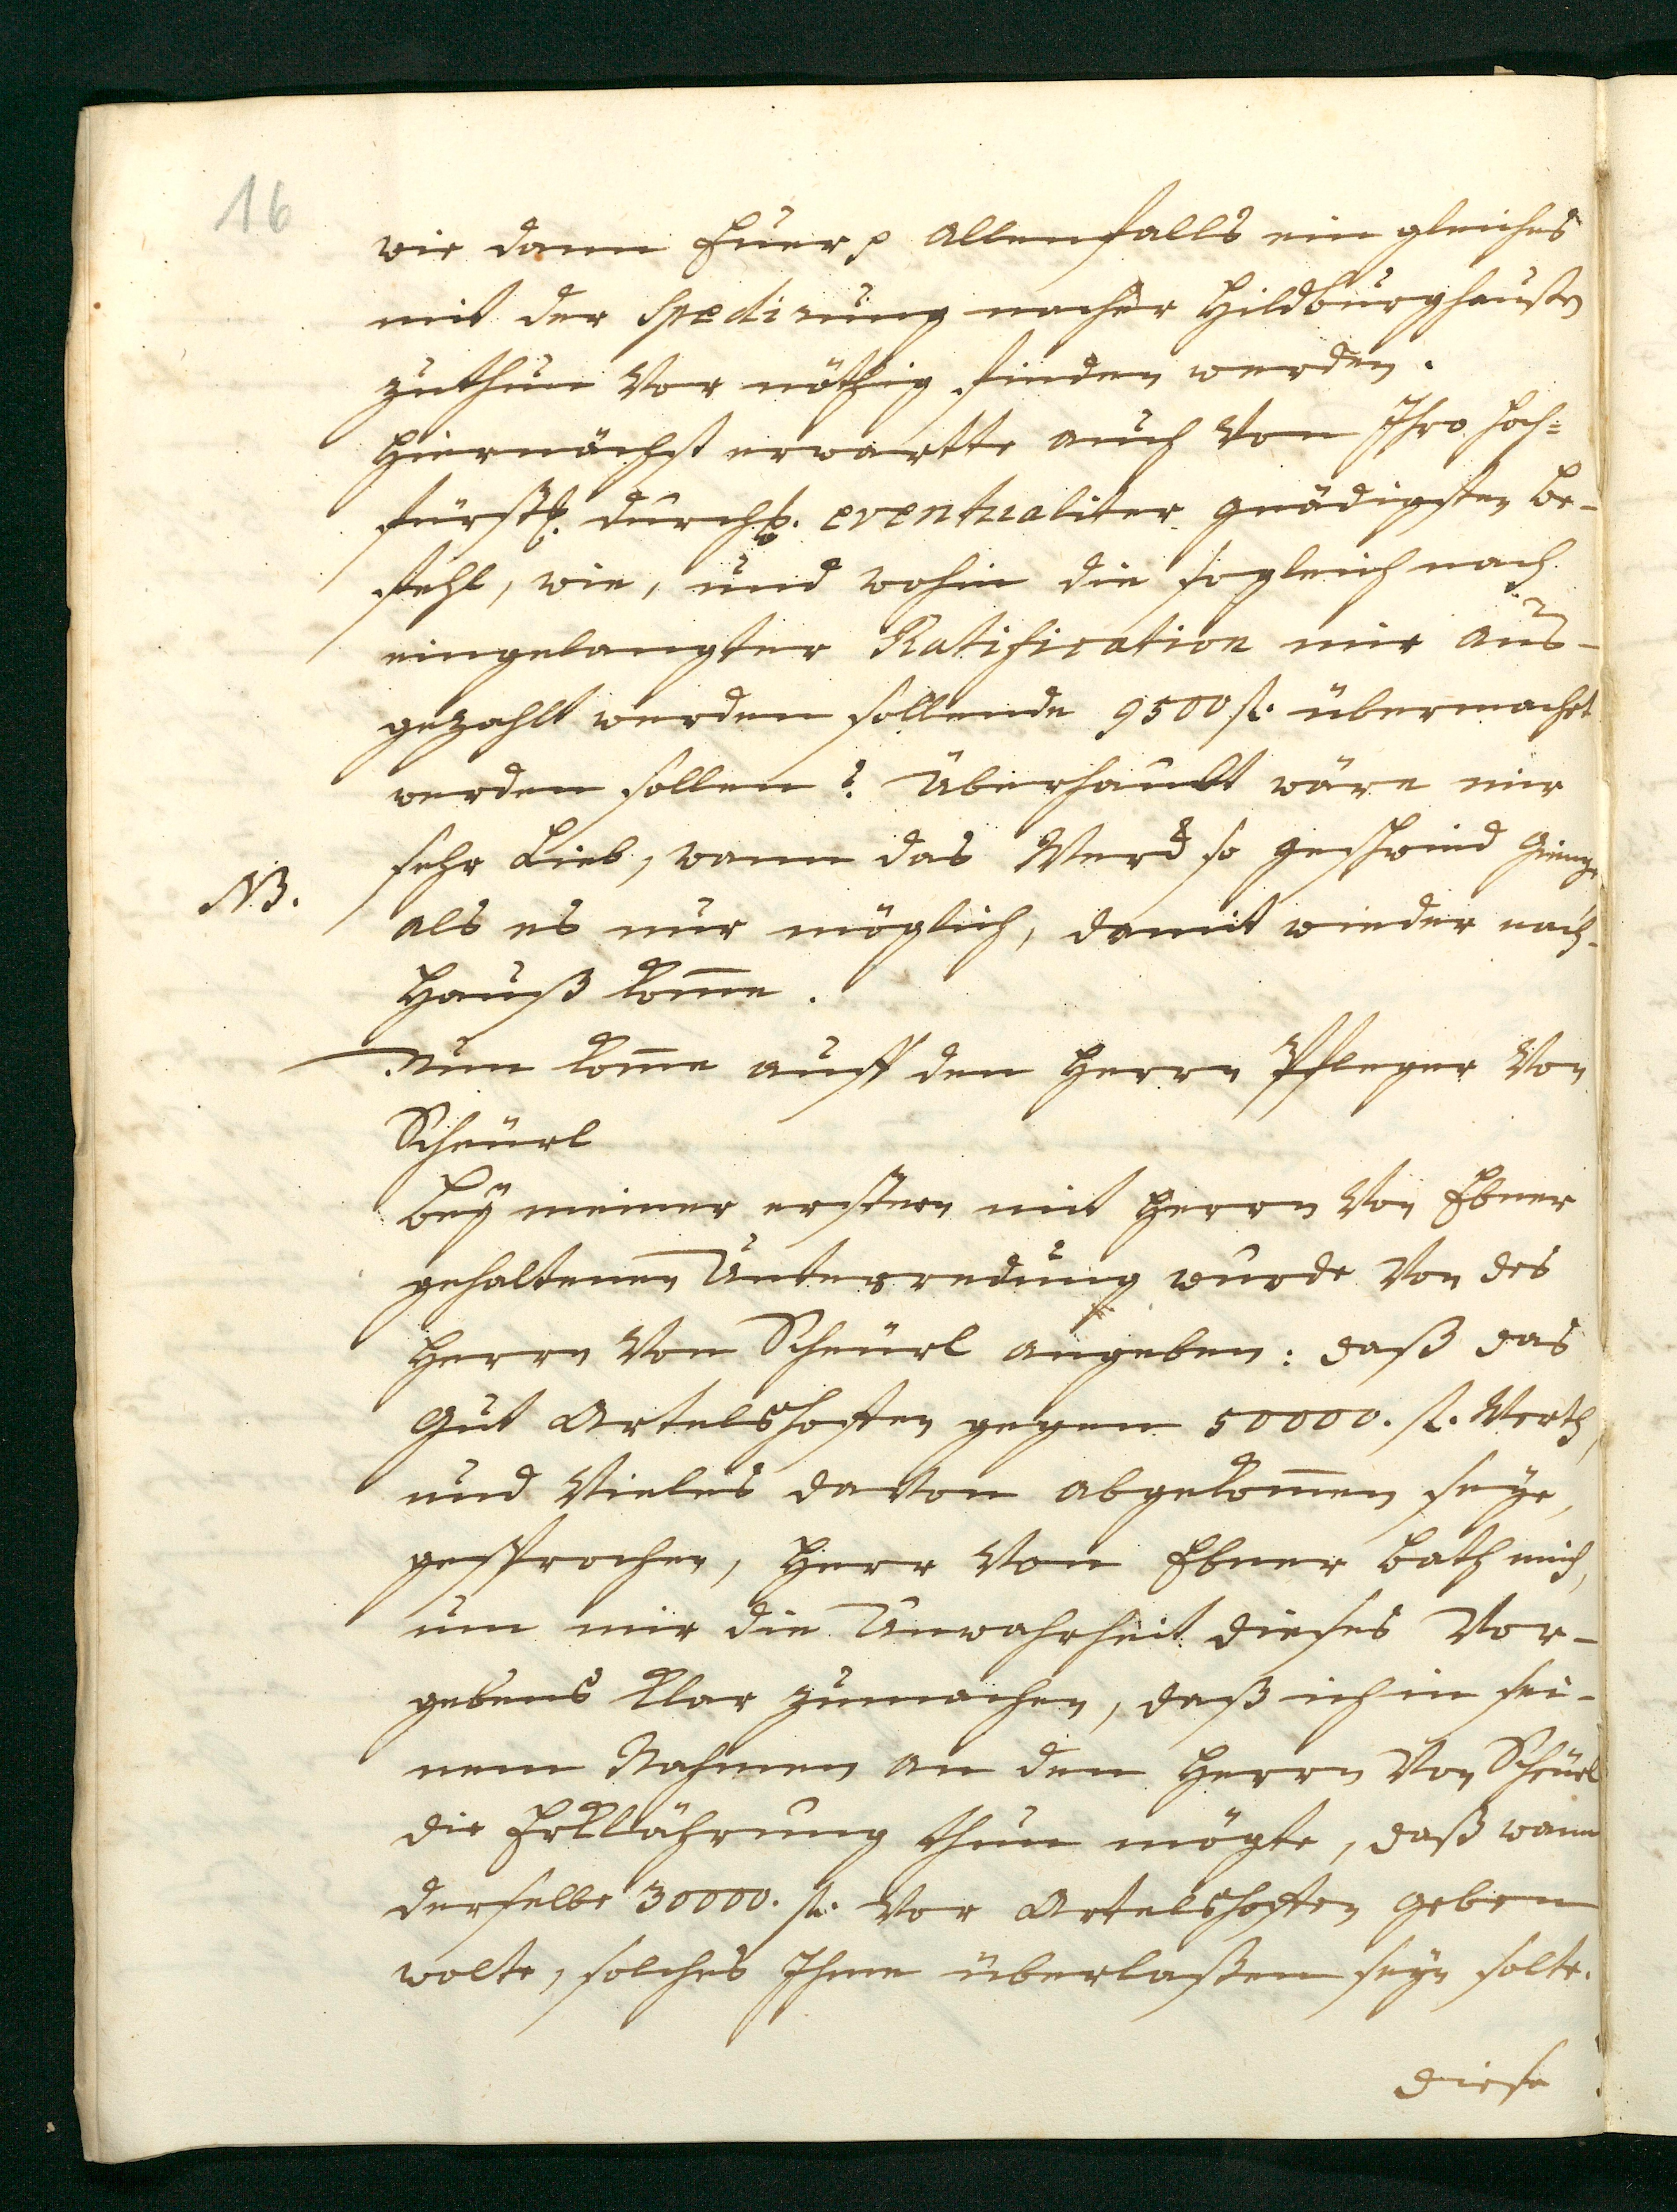 16
wie dann Euer p allenfalls ein gleiches
mit der Spedirung nacher Hildburghaußen
zuthun vor nöthig finden werden.
Hiernächst erwartte auch von Ihro Hoch=
fürstl. Durchl. eventualiter gnädigsten Be-
fehl, wie, und wohin die sogleich nach
eingelangter Ratification mir aus-
gezahlt werden sollende 9500 fl. übermacht
werden sollen? Überhaubt wäre mir
sehr Lieb, wann das Werck so geschwind gienge
NB.
als es nur möglich, damit wieder nach-
Hauß kom̅e.
Nun kom̅e auff den Herrn Pfleger von
Scheürl
Beÿ meiner erstern mit Herrn von Ebner
gehaltenen Unterredung wurde von des
Herrn von Scheürl angeben: daß das
Gut Artelshoffen gegen 50000. fl. Werth,
und vieles davon abgekom̅en seye,
gesprochen, Herr von Ebner bath mich,
um mir die Unwahrheit dieses Vor-
gebens klar zumachen, daß ich in sei-
nem Nahmen an den Herrn von Scheürl
die Erklährung thun mögte, daß wann
derselbe 30000. fl. vor Artelshoffen geben
wolte, solches Ihme überlaßen seyn solte.
Diese